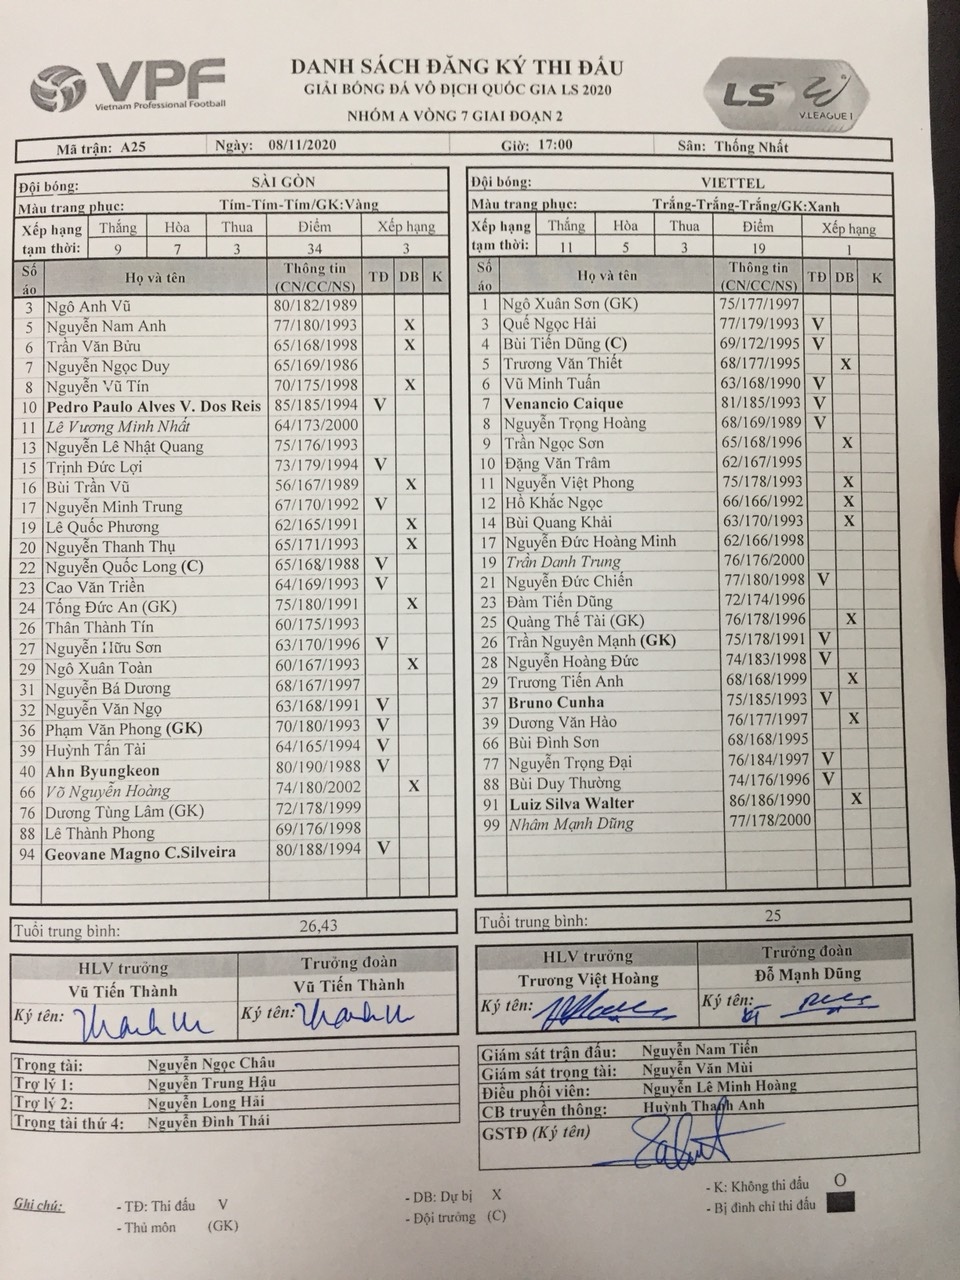 VPF
Vietnam Professional Football
DANH SÁCH ĐĂNG KÝ THI ĐẤU
GIẢI BÓNG ĐÁ VÔ ĐỊCH QUỐC GIA LS 2020
NHÓM A VÒNG 7 GIAI ĐOẠN 2
LS V.LEAGUE 1
Mã trận: A25 Ngày: 08/11/2020 Giờ: 17:00 Sân: Thống Nhất
Đội bóng: SÀI GÒN
Màu trang phục: Tím-Tím-Tím/GK:Vàng
Xếp hạng tạm thời: Thắng Hòa Thua Điểm Xếp hạng
9 7 3 34 3
Số áo Họ và tên Thông tin (CN/CC/NS) TĐ DB K
3 Ngô Anh Vũ 80/182/1989
5 Nguyễn Nam Anh 77/180/1993 X
6 Trần Văn Bửu 65/168/1998 X
7 Nguyễn Ngọc Duy 65/169/1986
8 Nguyễn Vũ Tín 70/175/1998 X
10 Pedro Paulo Alves V. Dos Reis 85/185/1994 V
11 Lê Vương Minh Nhất 64/173/2000
13 Nguyễn Lê Nhật Quang 75/176/1993
15 Trịnh Đức Lợi 73/179/1994 V
16 Bùi Trần Vũ 56/167/1989 X
17 Nguyễn Minh Trung 67/170/1992 V
19 Lê Quốc Phương 62/165/1991 X
20 Nguyễn Thanh Thụ 65/171/1993 X
22 Nguyễn Quốc Long (C) 65/168/1988 V
23 Cao Văn Triền 64/169/1993 V
24 Tống Đức An (GK) 75/180/1991 X
26 Thân Thành Tín 60/175/1993
27 Nguyễn Hữu Sơn 63/170/1996 V
29 Ngô Xuân Toàn 60/167/1993 X
31 Nguyễn Bá Dương 68/167/1997
32 Nguyễn Văn Ngọ 63/168/1991 V
36 Phạm Văn Phong (GK) 70/180/1993 V
39 Huỳnh Tấn Tài 64/165/1994 V
40 Ahn Byungkeon 80/190/1988 V
66 Võ Nguyên Hoàng 74/180/2002 X
76 Dương Tùng Lâm (GK) 72/178/1999
88 Lê Thành Phong 69/176/1998
94 Geovane Magno C.Silveira 80/188/1994 V
Tuổi trung bình: 26,43
HLV trưởng Trưởng đoàn
Vũ Tiến Thành Vũ Tiến Thành
Ký tên: Ký tên:
Trọng tài: Nguyễn Ngọc Châu
Trợ lý 1: Nguyễn Trung Hậu
Trợ lý 2: Nguyễn Long Hải
Trọng tài thứ 4: Nguyễn Đình Thái
Đội bóng: VIETTEL
Màu trang phục: Trắng-Trắng-Trắng/GK:Xanh
Xếp hạng tạm thời: Thắng Hòa Thua Điểm Xếp hạng
11 5 3 19 1
Số áo Họ và tên Thông tin (CN/CC/NS) TĐ DB K
1 Ngô Xuân Sơn (GK) 75/177/1997
3 Quế Ngọc Hải 77/179/1993 V
4 Bùi Tiến Dũng (C) 69/172/1995 V
5 Trương Văn Thiết 68/177/1995 X
6 Vũ Minh Tuấn 63/168/1990 V
7 Venancio Caique 81/185/1993 V
8 Nguyễn Trọng Hoàng 68/169/1989 V
9 Trần Ngọc Sơn 65/168/1996 X
10 Đặng Văn Trâm 62/167/1995
11 Nguyễn Việt Phong 75/178/1993 X
12 Hồ Khắc Ngọc 66/166/1992 X
14 Bùi Quang Khải 63/170/1993 X
17 Nguyễn Đức Hoàng Minh 62/166/1998
19 Trần Danh Trung 76/176/2000
21 Nguyễn Đức Chiến 77/180/1998 V
23 Đàm Tiến Dũng 72/174/1996
25 Quàng Thế Tài (GK) 76/178/1996 X
26 Trần Nguyên Mạnh (GK) 75/178/1991 V
28 Nguyễn Hoàng Đức 74/183/1998 V
29 Trương Tiến Anh 68/168/1999 X
37 Bruno Cunha 75/185/1993 V
39 Dương Văn Hào 76/177/1997 X
66 Bùi Đình Sơn 68/168/1995
77 Nguyễn Trọng Đại 76/184/1997 V
88 Bùi Duy Thường 74/176/1996 V
91 Luiz Silva Walter 86/186/1990 X
99 Nhâm Mạnh Dũng 77/178/2000
Tuổi trung bình: 25
HLV trưởng Trưởng đoàn
Trương Việt Hoàng Đỗ Mạnh Dũng
Ký tên: Ký tên:
Giám sát trận đấu: Nguyễn Nam Tiến
Giám sát trọng tài: Nguyễn Văn Mùi
Điều phối viên: Nguyễn Lê Minh Hoàng
CB truyền thông: Huỳnh Thanh Anh
GSTĐ (Ký tên)
Ghi chú: - TĐ: Thi đấu V - DB: Dự bị X - K: Không thi đấu O
- Thủ môn (GK) - Đội trưởng (C) - Bị đình chỉ thi đấu